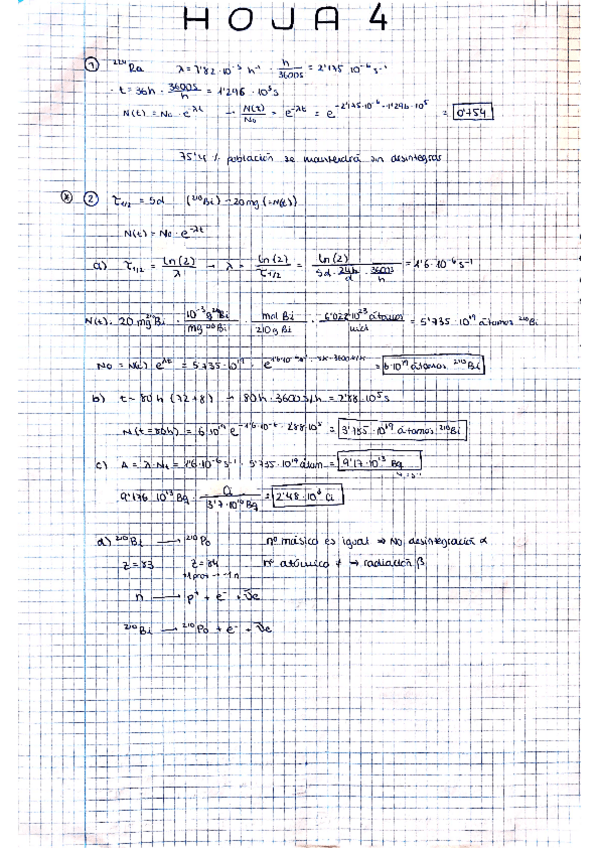 HOJA 4
① ²²⁴Ra λ = 7'82·10⁻³ h⁻¹ · h/3600s = 2'175·10⁻⁶ s⁻¹
· t = 36h · 3600s/h = 1'296·10⁵ s
N(t) = N₀·e^-λt → N(t)/N₀ = e^-λt = e^-2'175·10⁻⁶·1'296·10⁵ = 0'754
75'4 % población se mantendrá sin desintegrar
② τ₁/₂ = 5d (²¹⁰Bi) - 20mg (N(t))
N(t) = N₀·e^-λt
a) τ₁/₂ = ln(2)/λ → λ = ln(2)/τ₁/₂ = ln(2)/5d · 24h/d · 3600s/h = 1'6·10⁻⁶ s⁻¹
N(t) · 20 mg ²¹⁰Bi · 10⁻³ g ²¹⁰Bi/mg ²¹⁰Bi · mol Bi/210 g Bi · 6'022·10²³ átomos/mol = 5'735·10¹⁹ átomos ²¹⁰Bi
N₀ = N(t) e^λt = 5'735·10¹⁹ · = 6·10¹⁹ átomos ²¹⁰Bi
b) t = 80h (72+8) → 80h · 3600s/h = 2'88·10⁵ s
N(t=80h) = 6·10¹⁹ e^-1'6·10⁻⁶·2'88·10⁵ = 3'785·10¹⁹ átomos ²¹⁰Bi
c) A = λ·Nt = 1'6·10⁻⁶ s⁻¹ · 5'735·10¹⁹ átom = 9'17·10¹³ Bq
9'176·10¹³ Bq · Ci/3'7·10¹⁰ Bq = 2'48·10³ Ci
d) ²¹⁰Bi → ²¹⁰Po nº másico es igual ⇒ No desintegración α
Z=83 Z=84 nº atómico ≠ → radiación β
n → p⁺ + e⁻ + ν̄e
²¹⁰Bi → ²¹⁰Po + e⁻ + ν̄e